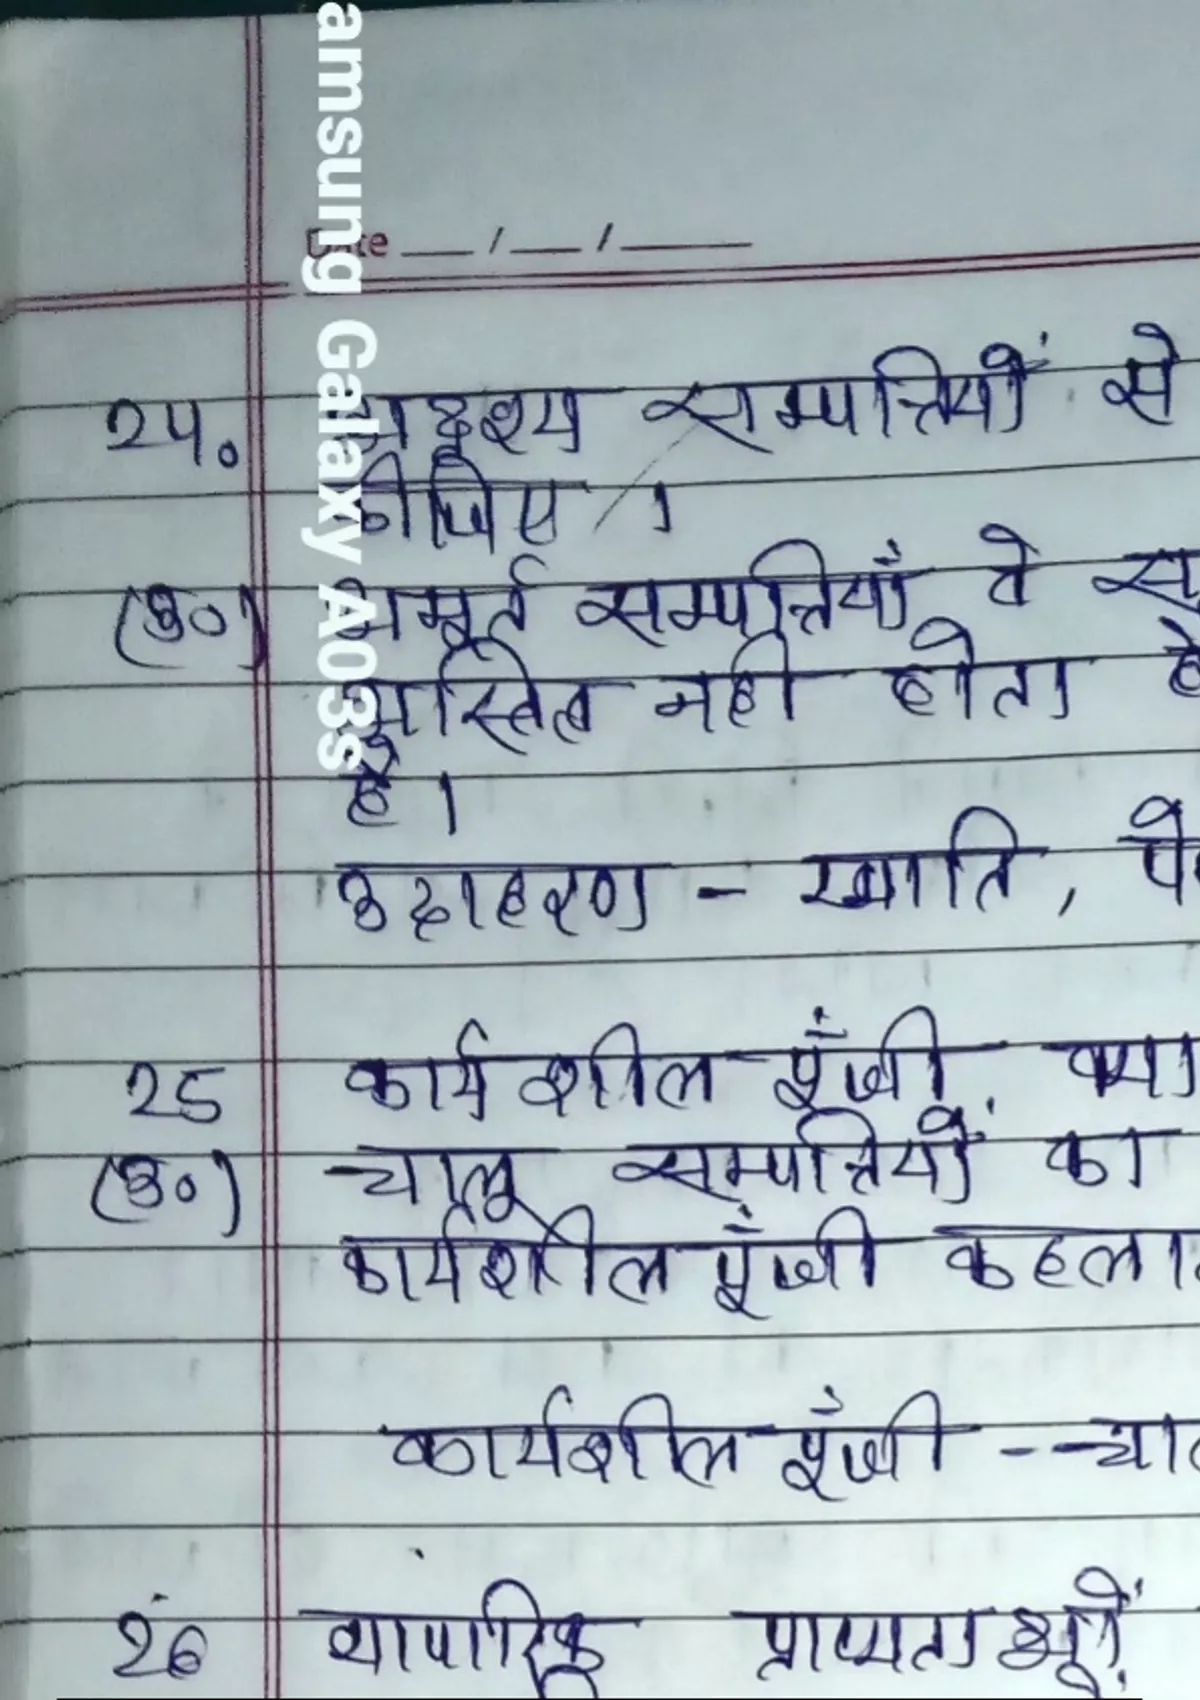 Samsung Galaxy A03s
Date __/__/____
24. अदृश्य सम्पत्तियों से
कीजिए ।
(उ०) अमूर्त सम्पत्तियाँ वे
अस्तित्व नही होता है
है ।
उदाहरण - ख्याति, पे
25 कार्यशील पूँजी क्या
(उ०) चालू सम्पत्तियों का
कार्यशील पूँजी कहला
कार्यशील पूँजी - चा
26 व्यापारिक प्राप्यताओं